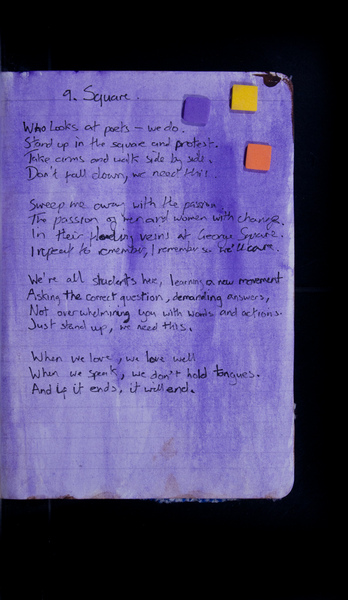 9. Square.
Who looks at poets - we do.
Stand up in the square and protest.
Take arms and walk side by side.
Don't fall down, we need this.
Sweep me away with the passion,
The passion of men and women with change.
In their bleeding veins at George Square.
I repeat to remember, I remember so we'll care.
We're all students here, learning a new movement
Asking the correct question, demanding answers,
Not overwhelming you with words and actions.
Just stand up, we need this.
When we love, we love well
When we speak, we don't hold tongues.
And if it ends, it will end.